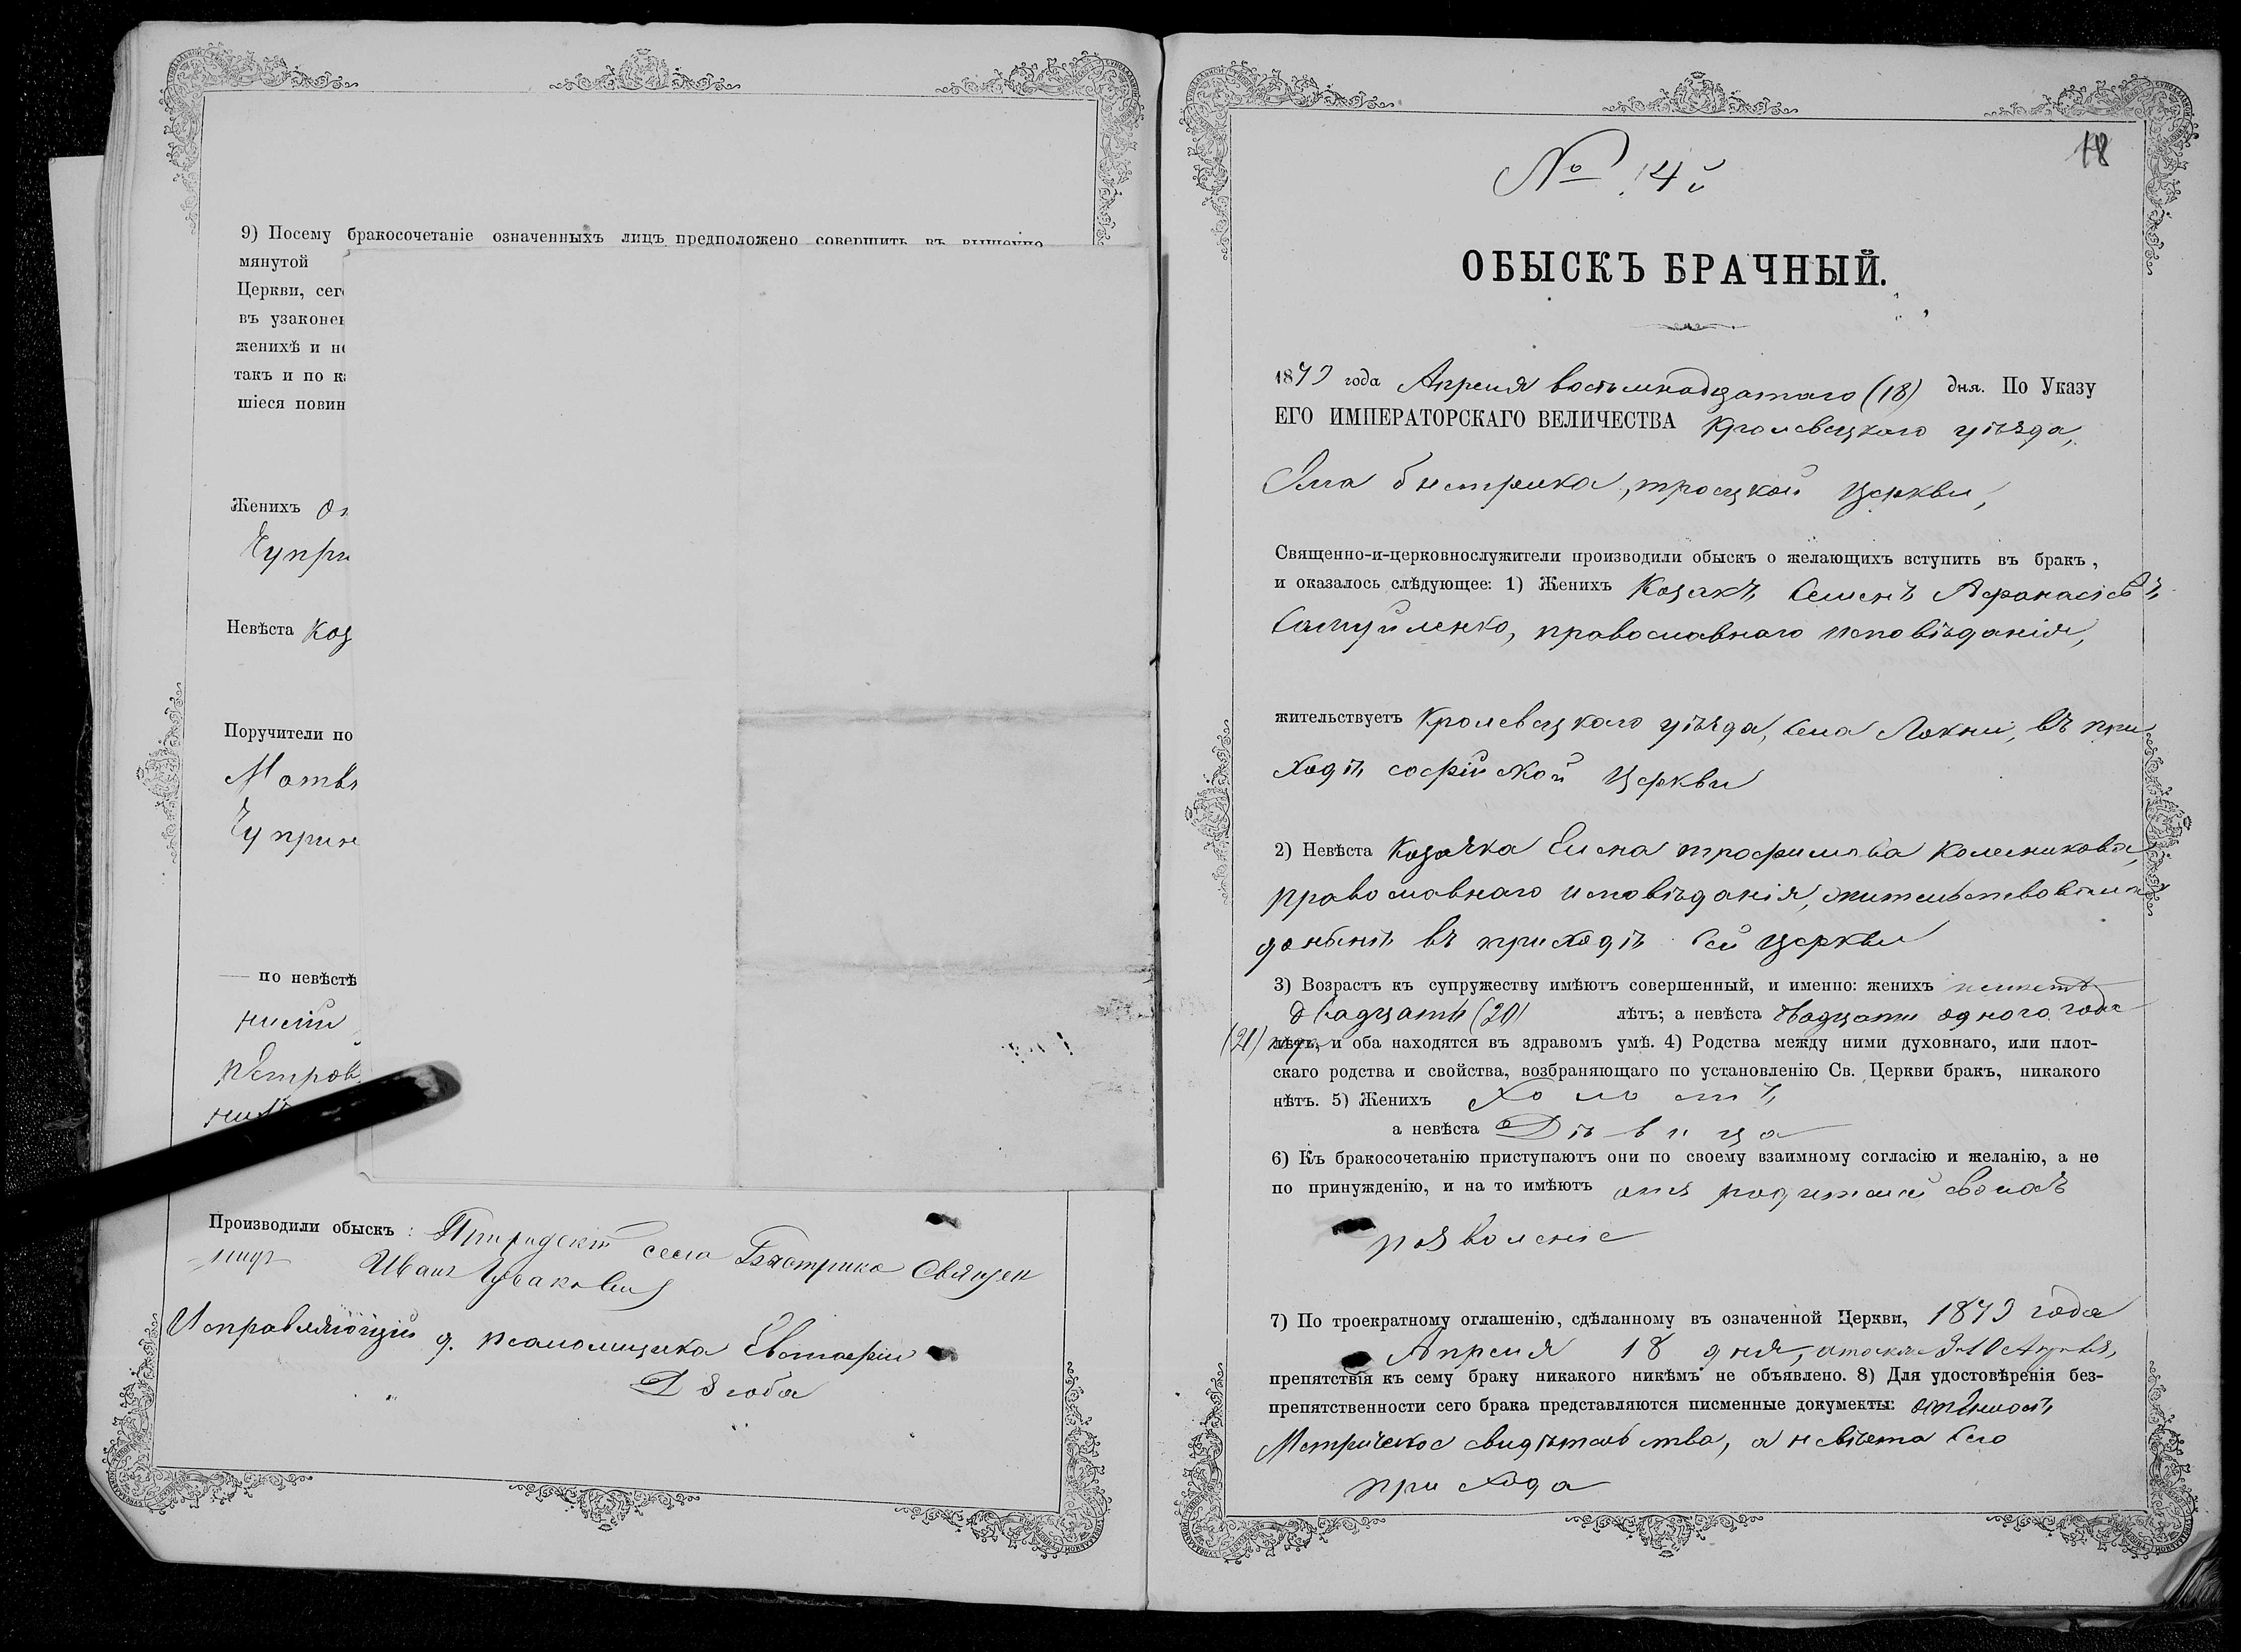 9) Посему бракосочетаніе означенныхъ лицъ предположено совершить въ вышеупо
мянутой
Церкви, сег
въ узаконен
женихѣ и не
такъ и по к
шіеся повин
Женихъ
Чупри
Невѣста Коз
Поручители по
Матвѣ
Чуприн
— по невѣстѣ
нисiи
Петров
Производили обыскъ: села Быстрика Священ
никъ Иванъ
Исправляющій д. псаломщика Евстафій
Дзюба
№ 14й
18
ОБЫСКЪ БРАЧНЫЙ.
1879 года Апреля восьмнадцатаго (18) дня. По Указу
ЕГО ИМПЕРАТОРСКАГО ВЕЛИЧЕСТВА Кролевецкого уѣзда,
Села Быстрика, троецкой церкви,
Священно-и-церковнослужители производили обыскъ о желающихъ вступить въ бракъ,
и оказалось слѣдующее: 1) Женихъ Козакъ Семенъ Афанасіевъ
Самуйленко, православнаго исповѣданія,
жительствуетъ Кролевецкого уѣзда, Села Локни, въ при
ходѣ софійской церкви
2) Невѣста Козачка Елена трофимова Колесникова,
православнаго исповѣданія, жительствовала
донынѣ въ приходѣ сей церкви
3) Возрастъ къ супружеству имѣютъ совершенный, и именно: женихъ
двадцать (20) лѣтъ; а невѣста двадцати одного года
(21) лѣтъ, и оба находятся въ здравомъ умѣ. 4) Родства между ними духовнаго, или плот-
скаго родства и свойства, возбраняющаго по установленію Св. Церкви бракъ, никакого
нѣтъ. 5) Женихъ Холостъ
а невѣста Дѣвица
6) Къ бракосочетанію приступаютъ они по своему взаимному согласію и желанію, а не
по принужденію, и на то имѣютъ отъ родителей своихъ
позволеніе
7) По троекратному оглашенію, сдѣланному въ означенной Церкви, 1879 года
Апреля 18 дня,
препятствія къ сему браку никакого никѣмъ не объявлено. 8) Для удостовѣренія без-
препятственности сего брака представляются писменные документы:
Метрическое свидѣтельство, а невѣста сего
прихода